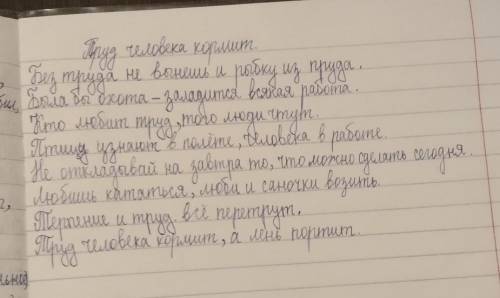 Труд человека кормит.
Без труда не вынешь и рыбку из пруда.
Была бы охота – заладится всякая работа.
Кто любит труд, того люди чтут.
Птицу узнают в полёте, человека в работе.
Не откладывай на завтра то, что можно сделать сегодня.
Любишь кататься, люби и саночки возить.
Терпение и труд всё перетрут.
Труд человека кормит, а лень портит.